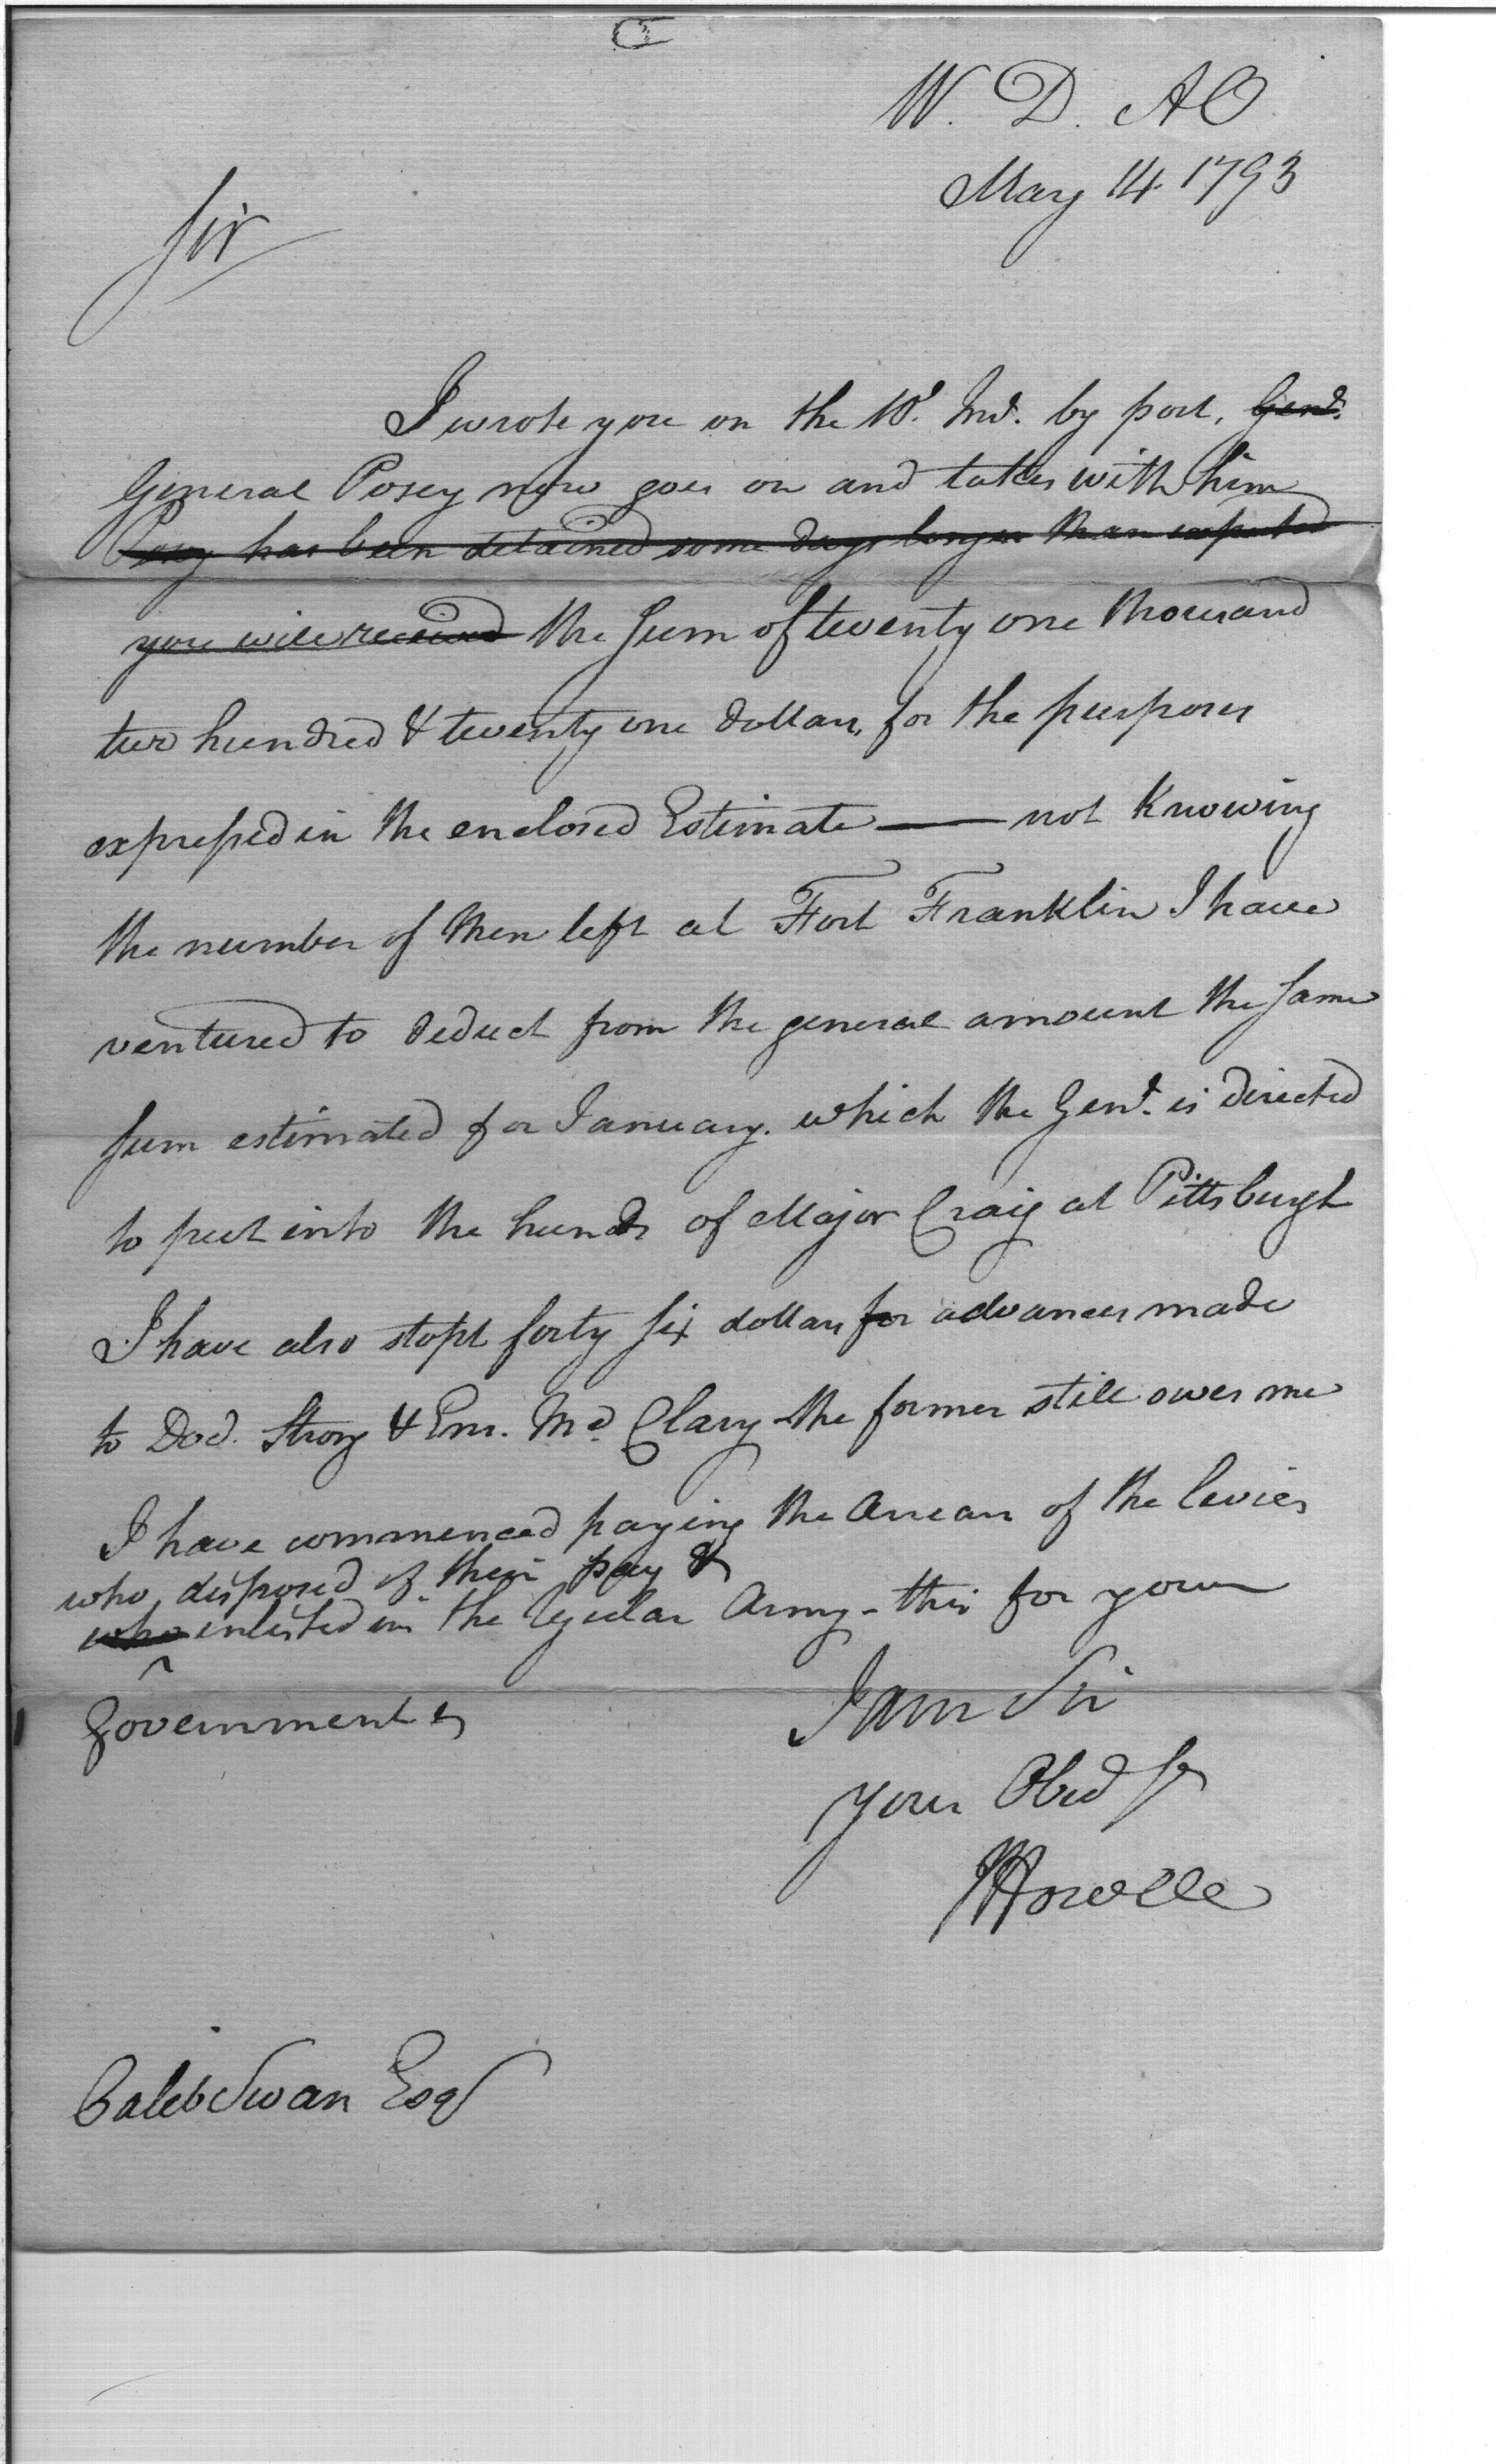 W. D. AO.
May 14 1793
Sir
I wrote you on the 10th. Inst. by post, Genl.
General Posey now goes on and takes with him
Posey has been detained some days longer than expected
you will receive the Sum of twenty one thousand
two hundred & twenty one dollars, for the purposes
expressed in the enclosed Estimate — not knowing
the number of Men left at Fort Franklin I have
ventured to deduct from the general amount the same
sum estimated for January. which the Genl. is directed
to put into the hands of Major Craig at Pittsburgh
I have also stopt forty six dollars for advances made
to Doc. Strong & Ens. Mc. Clary - the former still owes me
I have commenced paying the Arrears of the levies
who disposed of their pay &
who enlisted in the regular Army - this for your
Government &
I am Sir
Your Obed St
J Howell
Caleb Swan Esqr